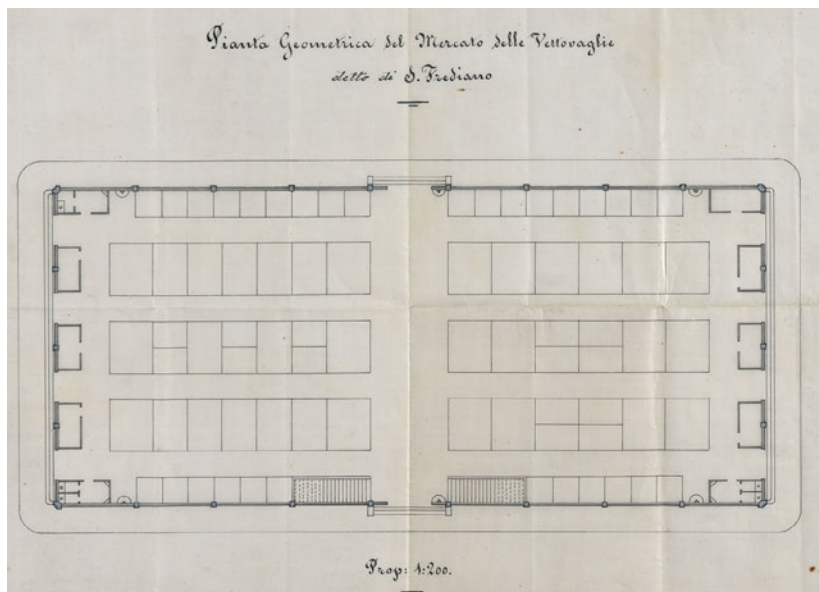 Pianta Geometrica del Mercato delle Vettovaglie
detto di S. Frediano
Prop: 1:200.